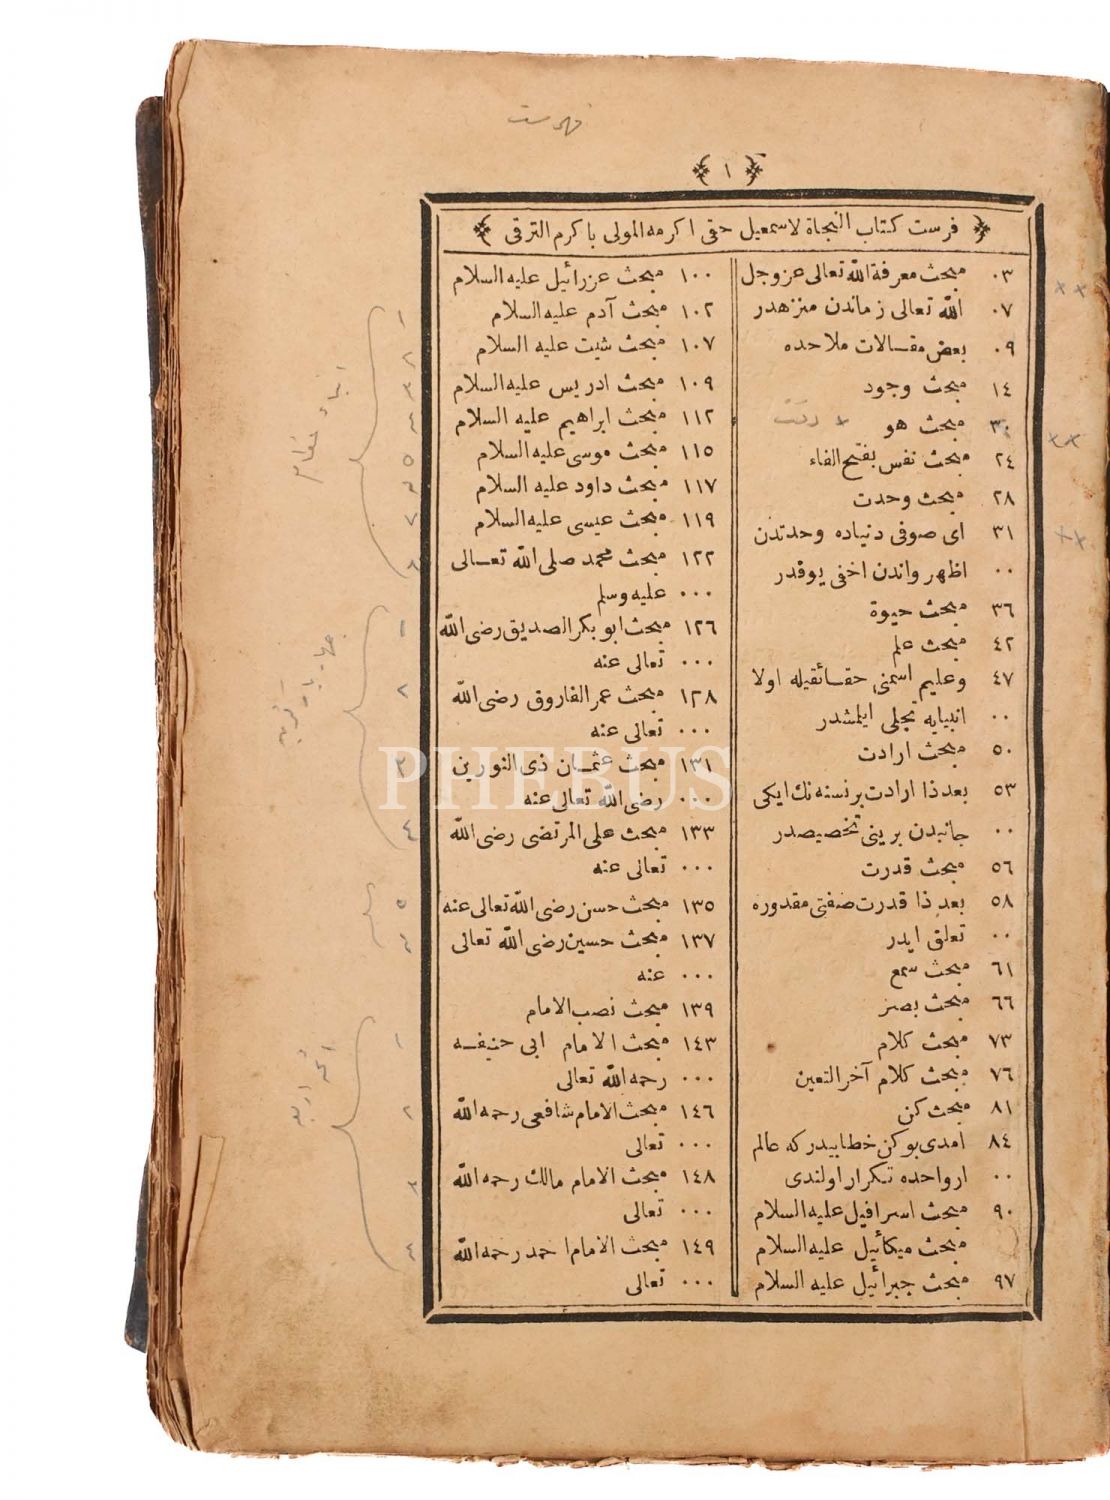 فهرست
١
فرست كتاب النجاة لاسمعيل حقى اكرمه المولى باكرم الترقى
٠٣ مبحث معرفة الله تعالى عز وجل
٠٧ الله تعالى زماندن منزهدر
٠٩ بعض مقالات ملاحده
١٤ مبحث وجود
٣٠ مبحث هو
٢٤ مبحث نفس بفتح الفاء
٢٨ مبحث وحدت
٣١ اى صوفى دنياده وحدتدن
٠٠ اظهر واندن اخفى يوقدر
٣٦ مبحث حيوة
٤٢ مبحث علم
٤٧ وعليم اسمنى حقائقيله اولا
٠٠ انبيايه تجلى ايلمشدر
٥٠ مبحث ارادت
٥٣ بعد ذا ارادت برنسته نك ايكى
٠٠ جانبدن برينى تخصيصدر
٥٦ مبحث قدرت
٥٨ بعد ذا قدرت صفتى مقدوره
٠٠ تعلق ايدر
٦١ مبحث سمع
٦٦ مبحث بصر
٧٣ مبحث كلام
٧٦ مبحث كلام آخر التعين
٨١ مبحث كن
٨٤ امدى بوكن خطابيدركه عالم
٠٠ ارواحده تكرار اولندى
٩٠ مبحث اسرافيل عليه السلام
مبحث ميكائيل عليه السلام
٩٧ مبحث جبرائيل عليه السلام
١٠٠ مبحث عزرائيل عليه السلام
١٠٢ مبحث آدم عليه السلام
١٠٧ مبحث شيث عليه السلام
١٠٩ مبحث ادريس عليه السلام
١١٢ مبحث ابراهيم عليه السلام
١١٥ مبحث موسى عليه السلام
١١٧ مبحث داود عليه السلام
١١٩ مبحث عيسى عليه السلام
١٢٢ مبحث محمد صلى الله تعالى
٠٠٠ عليه وسلم
١٢٦ مبحث ابو بكر الصديق رضى الله
٠٠٠ تعالى عنه
١٢٨ مبحث عمر الفاروق رضى الله
٠٠٠ تعالى عنه
١٣١ مبحث عثمان ذى النورين
٠٠٠ رضى الله تعالى عنه
١٣٣ مبحث على المرتضى رضى الله
٠٠٠ تعالى عنه
١٣٥ مبحث حسن رضى الله تعالى عنه
١٣٧ مبحث حسين رضى الله تعالى
٠٠٠ عنه
١٣٩ مبحث نصب الامام
١٤٣ مبحث الامام ابى حنيفه
٠٠٠ رحمه الله تعالى
١٤٦ مبحث الامام شافعى رحمه الله
٠٠٠ تعالى
١٤٨ مبحث الامام مالك رحمه الله
٠٠٠ تعالى
١٤٩ مبحث الامام احمد رحمه الله
٠٠٠ تعالى
انبياء عظام
١
٢
٣
٤
٥
٦
٧
٨
چهار يار
١
٢
٣
٤
٥
٦
ائمه اربعه
١
٢
٣
٤
PHEBUS